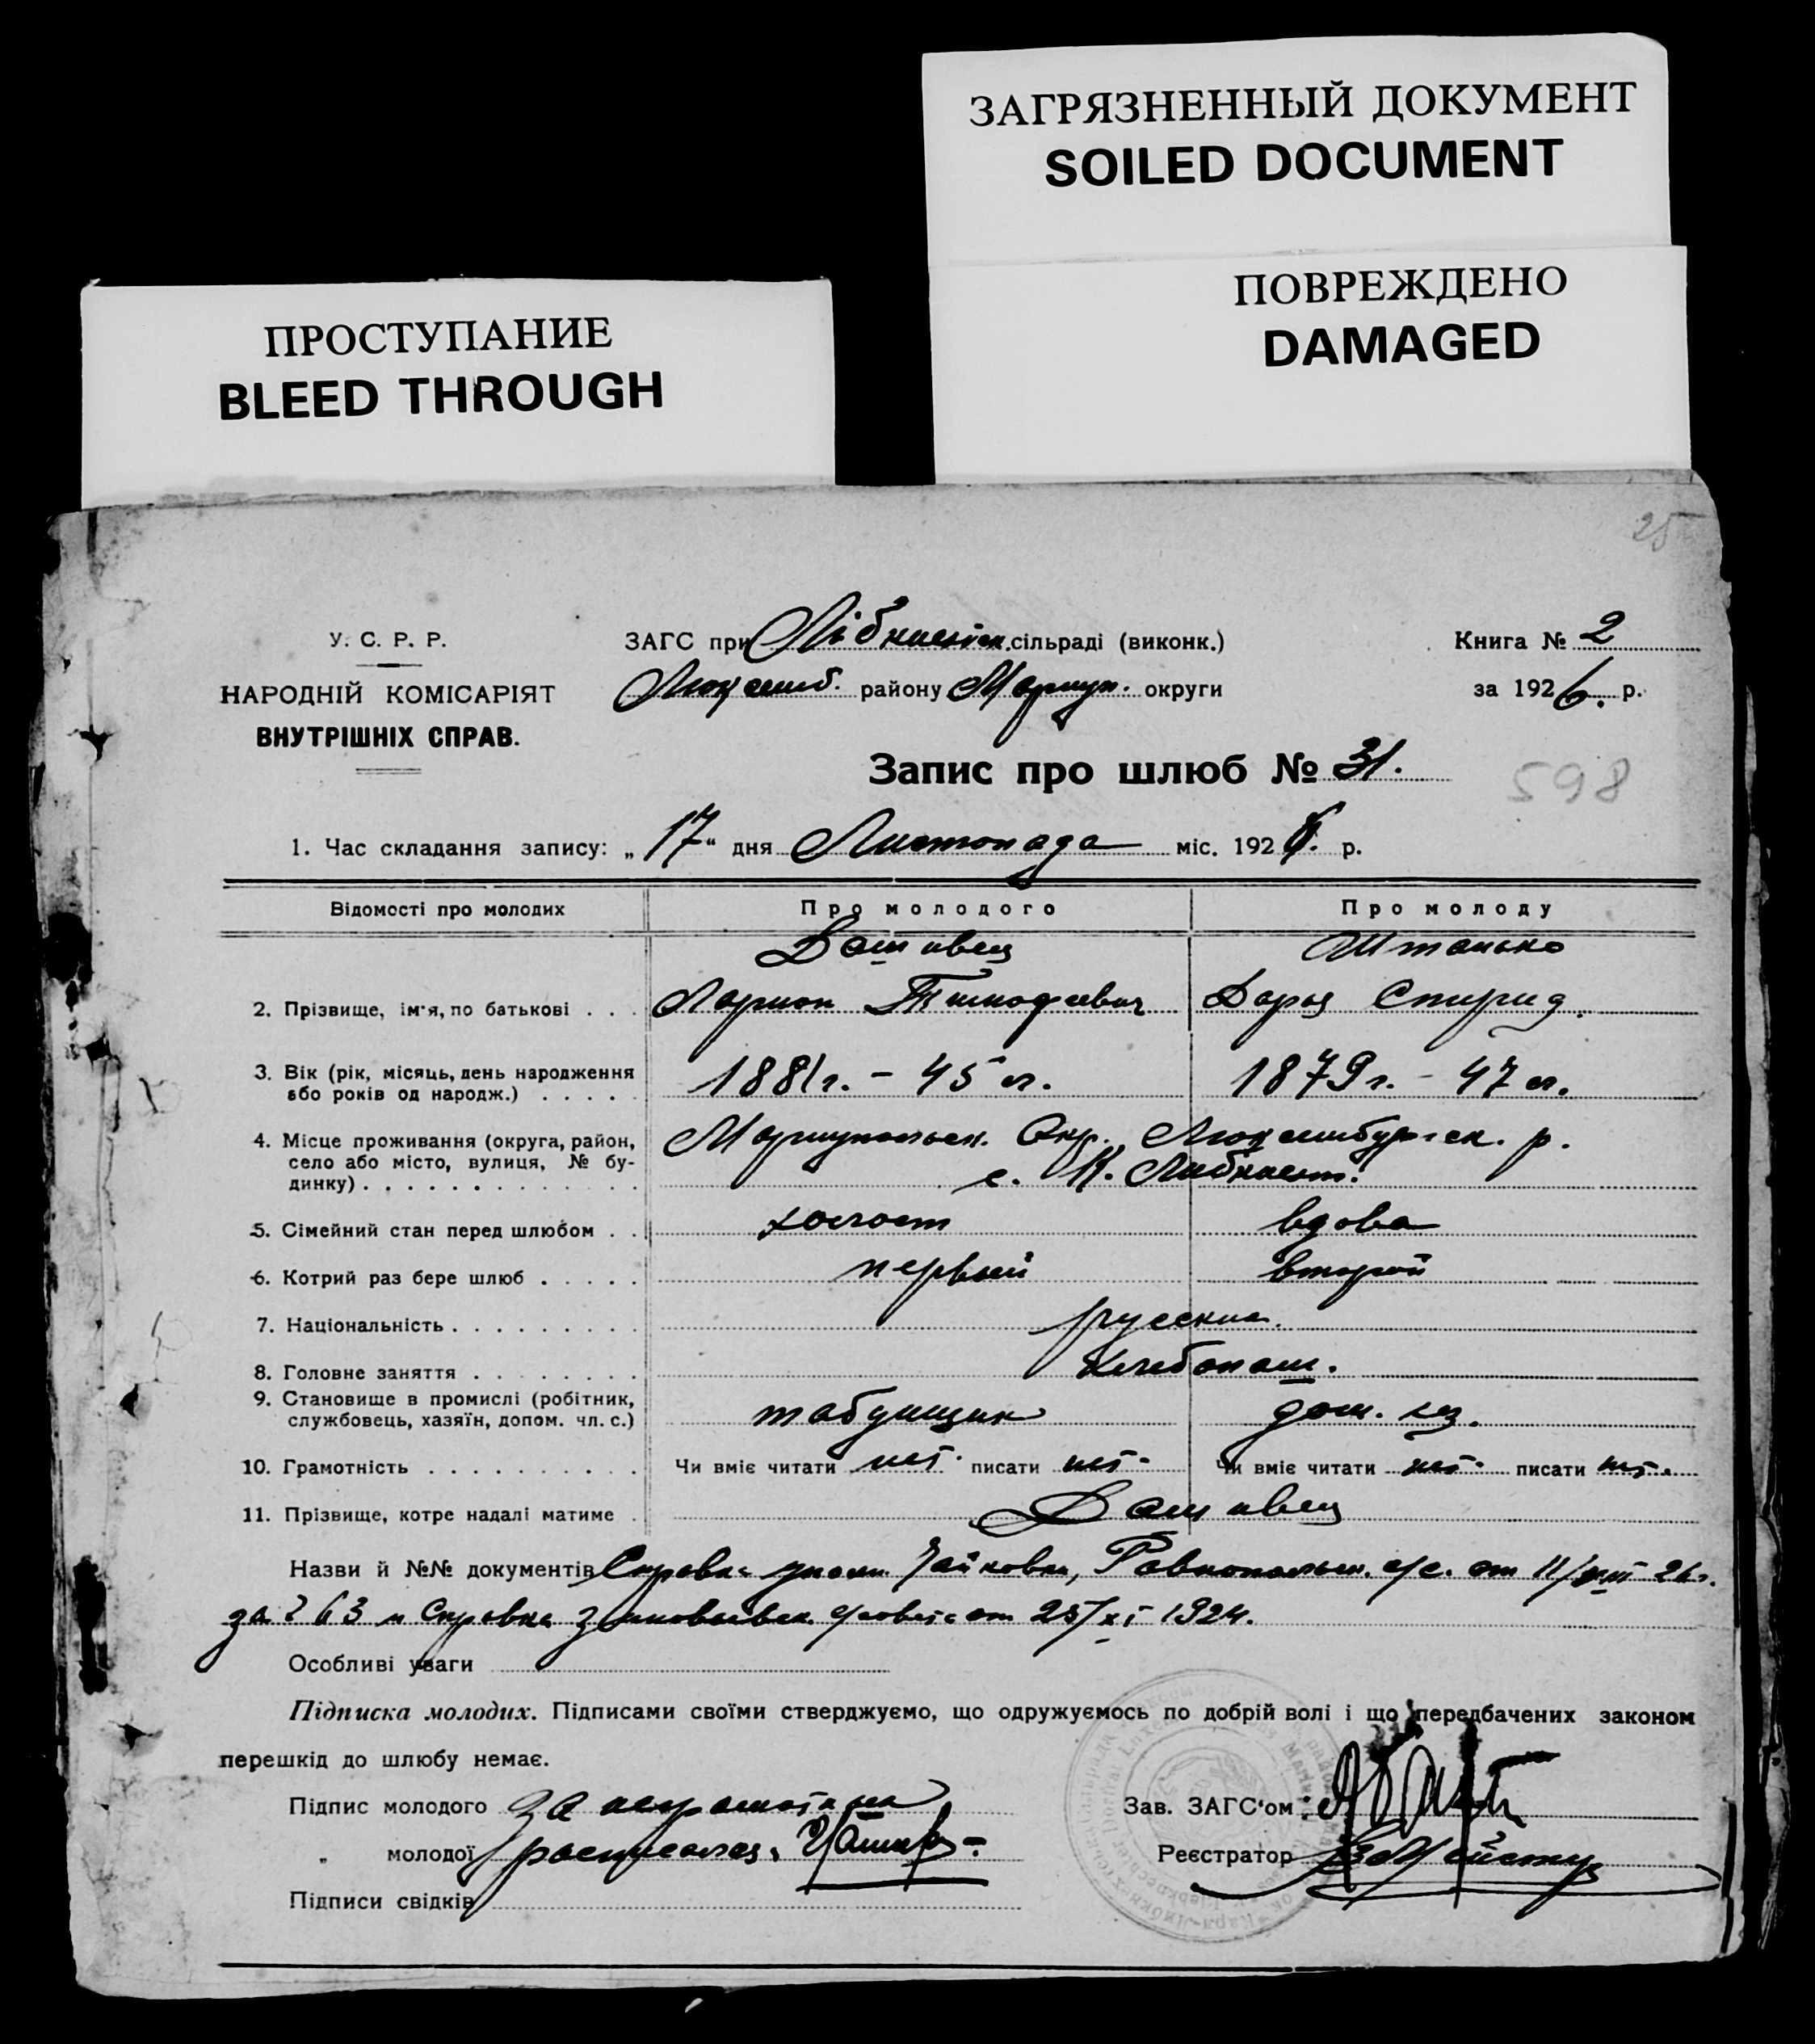 ЗАГРЯЗНЕННЫЙ ДОКУМЕНТ
SOILED DOCUMENT
ПОВРЕЖДЕНО
DAMAGED
ПРОСТУПАНИЕ
BLEED THROUGH
25
У. С. Р. Р.
НАРОДНІЙ КОМІСАРІЯТ
ВНУТРІШНІХ СПРАВ.
ЗАГС при Лібкнехтск. сільраді (виконк.)
Люксемб. району Мариуп. округи
Книга № 2
за 1926. р.
Запис про шлюб № 31.
598
1. Час складання запису: „17“ дня Листопада міс. 1926. р.
Відомості про молодих Про молодого Про молоду
Штанько
2. Прізвище, ім'я, по батькові . . . Ларион Тимофеевич Дарья Спирид.
3. Вік (рік, місяць, день народження
або років од народж.) . . . . . 1881 г. – 45 л. 1879 г. – 47 л.
4. Місце проживання (округа, район, Мариупольск. Окр., Люксембургск. р.
село або місто, вулиця, № бу-
динку) . . . . . . . . . . . . . с. К. Либкнехт.
5. Сімейний стан перед шлюбом . . холост вдова
6. Котрий раз бере шлюб . . . . . первый второй
7. Національність . . . . . . . . . русские.
8. Головне заняття . . . . . . . . хлебопаш.
9. Становище в промислі (робітник,
службовець, хазяїн, допом. чл. с.) табунщик дом. хоз.
10. Грамотність . . . . . . . . . . Чи вміє читати нет. писати нет. Чи вміє читати нет. писати нет.
11. Прізвище, котре надалі матиме .
Назви й №№ документів Справка Равнопольск. с/с. от 11/
за 263 и Справка от 25/XI 1924.
Особливі уваги
Підписка молодих. Підписами своїми стверджуємо, що одружуємось по добрій волі і що передбачених законом
перешкід до шлюбу немає.
Підпис молодого за неграмотных
„ молодої расписался
Підписи свідків
Зав. ЗАГС'ом:
Реєстратор